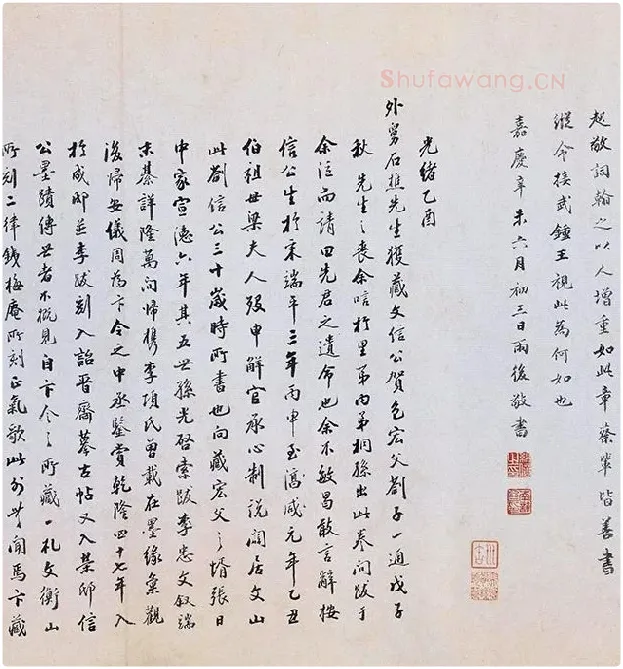 Shufawang.CN
趙敬詞翰之以人增重如此章蔡輩皆善書
縱令接武鍾王視此為何如也
嘉慶辛未六月初三日雨後敬書
光緒乙酉
外舅石樵先生獲藏文信公賀包宏父劄子一通戊子
秋先生之喪余唁於里弟內弟桐孫出此卷問跋于
余泣而請曰先君之遺命也余不敏曷敢言辭按
信公生於宋端平三年丙申至為咸元年乙丑
伯祖母梁夫人歿申解官承心制說闗居文山
此劄信公三十歲時所書也向藏宏父之壻張日
中家宣德六年其五世孫光啓索跋李忠文叙端
末綦詳隆萬間歸檇李項氏曾載在墨緣彙觀
後歸安儀周為卞令之中丞鑒賞乾隆四十七年入
於成邸並李跋刻入詒晉齋摹古帖又入榮邸信
公墨蹟傳世者不概見自卞令之所藏一札文衡山
所刻二律錢梅庵所刻正氣歌此外無聞焉卞藏